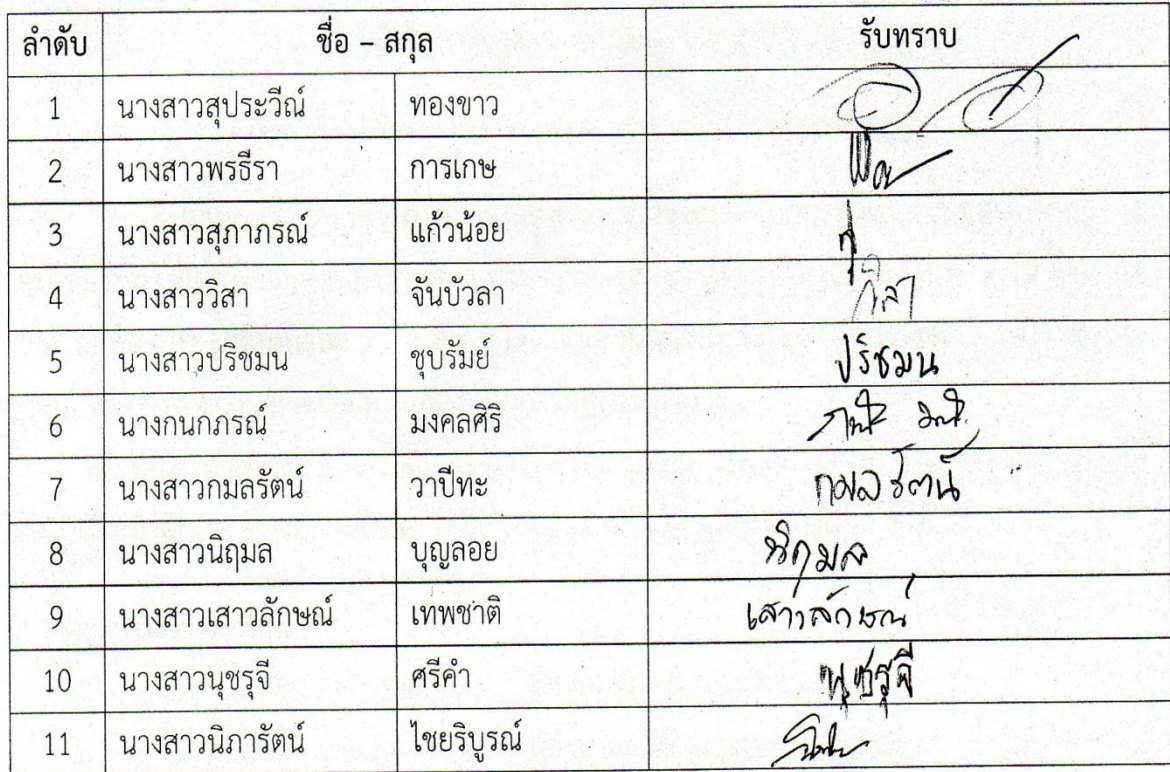 ลำดับ ชื่อ – สกุล รับทราบ
1 นางสาวสุประวีณ์ ทองขาว
2 นางสาวพรธีรา การเกษ
3 นางสาวสุภาภรณ์ แก้วน้อย
4 นางสาววิสา จันบัวลา วิสา
5 นางสาวปริชมน ชุบรัมย์ ปริชมน
6 นางกนกภรณ์ มงคลศิริ
7 นางสาวกมลรัตน์ วาปีทะ กมลรัตน์
8 นางสาวนิฤมล บุญลอย นิฤมล
9 นางสาวเสาวลักษณ์ เทพชาติ เสาวลักษณ์
10 นางสาวนุชรุจี ศรีคำ นุชรุจี
11 นางสาวนิภารัตน์ ไชยริบูรณ์